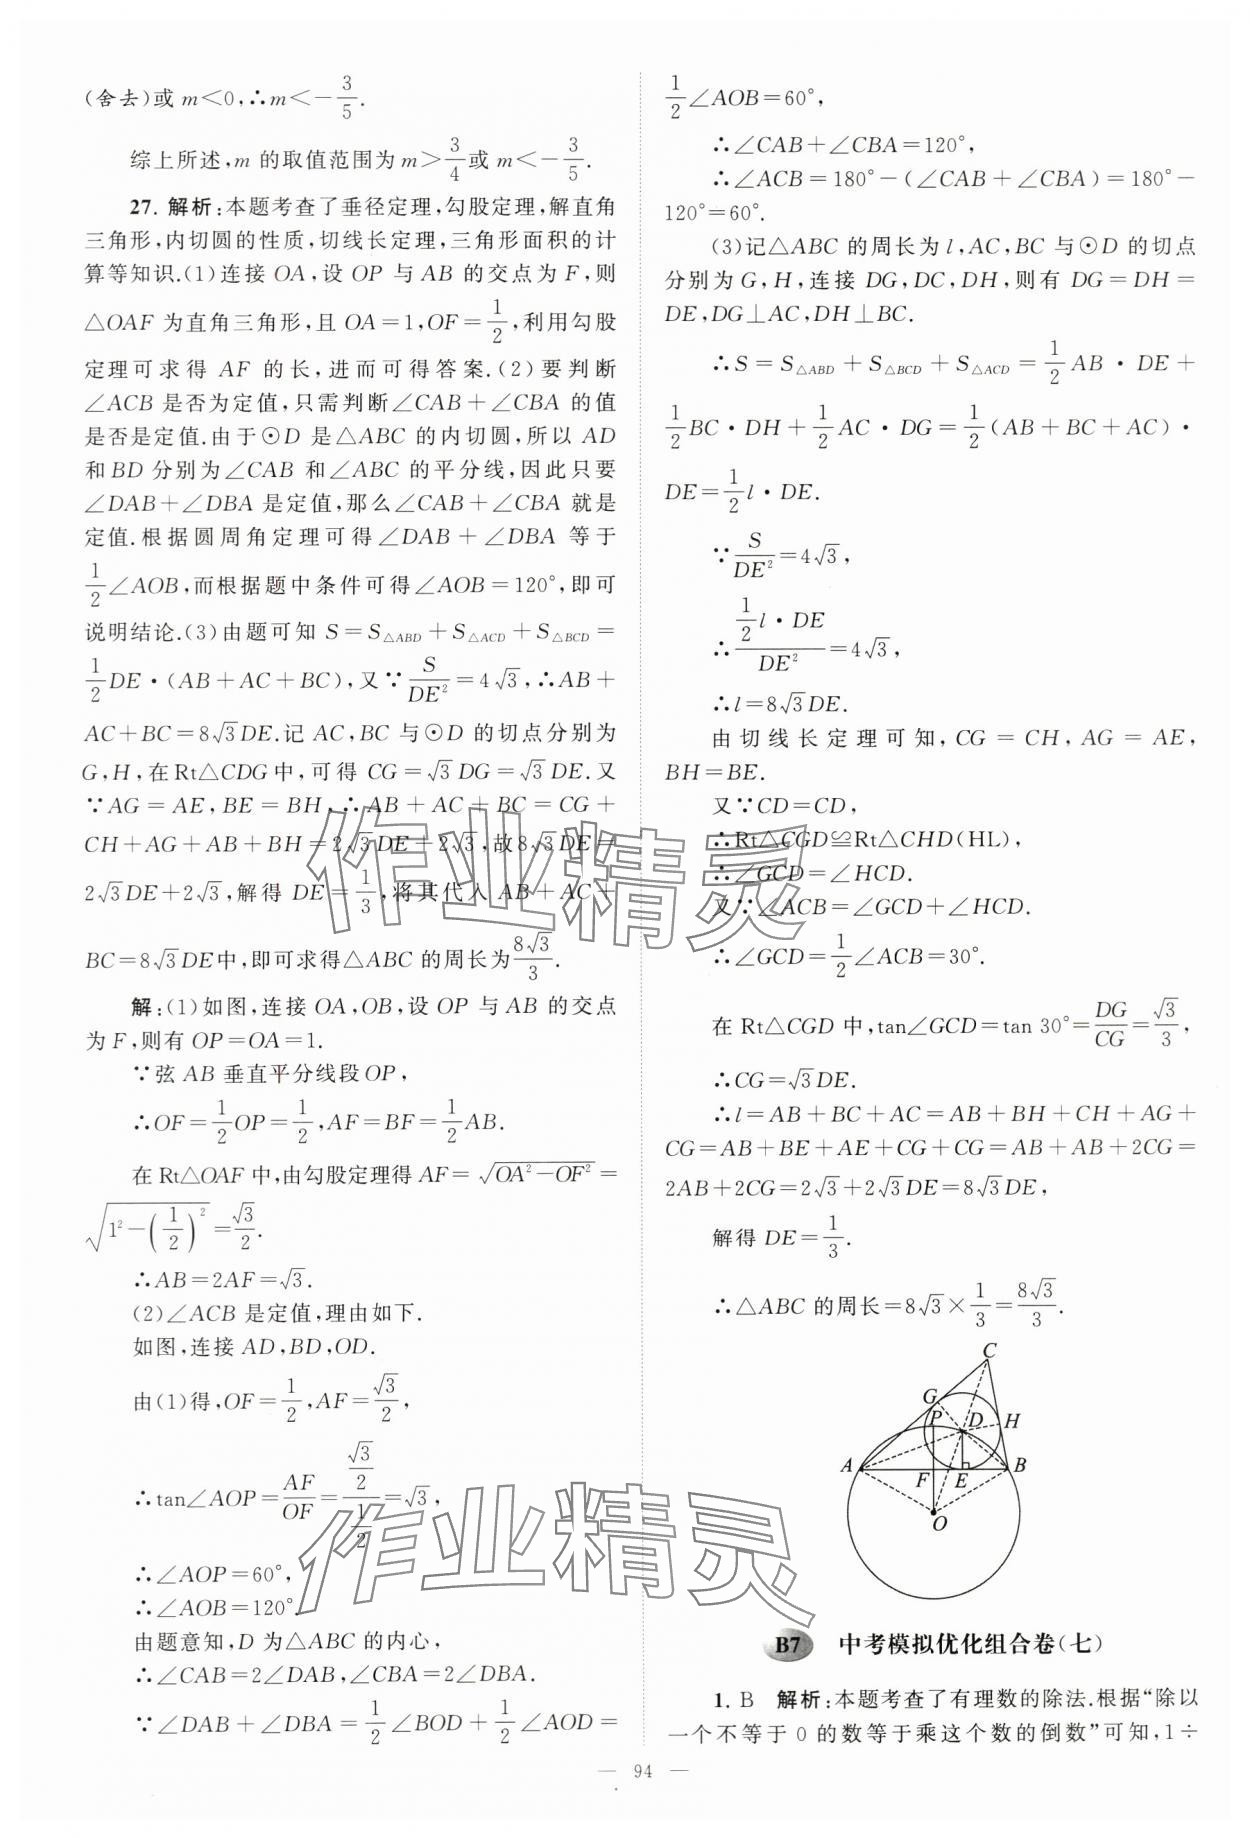 (舍去)或 m<0,∴m<-3/5.
综上所述,m 的取值范围为 m>3/4或 m<-3/5.
27. 解析:本题考查了垂径定理,勾股定理,解直角
三角形,内切圆的性质,切线长定理,三角形面积的计
算等知识.(1)连接 OA,设 OP 与 AB 的交点为 F,则
△OAF 为直角三角形,且 OA=1,OF=1/2,利用勾股
定理可求得 AF 的长,进而可得答案.(2)要判断
∠ACB 是否为定值,只需判断∠CAB+∠CBA 的值
是否是定值.由于⊙D 是△ABC 的内切圆,所以 AD
和 BD 分别为∠CAB 和∠ABC 的平分线,因此只要
∠DAB+∠DBA 是定值,那么∠CAB+∠CBA 就是
定值.根据圆周角定理可得∠DAB+∠DBA 等于
1/2∠AOB,而根据题中条件可得∠AOB=120°,即可
说明结论.(3)由题可知 S=S△ABD+S△ACD+S△BCD=
1/2DE·(AB+AC+BC),又∵S/DE²=4√3,∴AB+
AC+BC=8√3DE.记 AC,BC 与⊙D 的切点分别为
G,H,在 Rt△CDG 中,可得 CG=√3DG=√3DE.又
∵AG=AE,BE=BH,∴AB+AC+BC=CG+
CH+AG+AB+BH=2√3DE+2√3,故8√3DE=
2√3DE+2√3,解得 DE=1/3,将其代入 AB+AC+
BC=8√3DE中,即可求得△ABC 的周长为8√3/3.
解:(1)如图,连接 OA,OB,设 OP 与 AB 的交点
为 F,则有 OP=OA=1.
∵弦 AB 垂直平分线段 OP,
∴OF=1/2OP=1/2,AF=BF=1/2AB.
在 Rt△OAF 中,由勾股定理得 AF=√(OA²-OF²)=
√(1²-(1/2)²)=√3/2.
∴AB=2AF=√3.
(2)∠ACB 是定值,理由如下.
如图,连接 AD,BD,OD.
由(1)得,OF=1/2,AF=√3/2,
∴tan∠AOP=AF/OF=(√3/2)/(1/2)=√3,
∴∠AOP=60°,
∴∠AOB=120°.
由题意知,D 为△ABC 的内心,
∴∠CAB=2∠DAB,∠CBA=2∠DBA.
∵∠DAB+∠DBA=1/2∠BOD+1/2∠AOD=
1/2∠AOB=60°,
∴∠CAB+∠CBA=120°,
∴∠ACB=180°-(∠CAB+∠CBA)=180°-
120°=60°.
(3)记△ABC 的周长为 l,AC,BC 与⊙D 的切点
分别为 G,H,连接 DG,DC,DH,则有 DG=DH=
DE,DG⊥AC,DH⊥BC.
∴S=S△ABD+S△BCD+S△ACD=1/2AB·DE+
1/2BC·DH+1/2AC·DG=1/2(AB+BC+AC)·
DE=1/2l·DE.
∵S/DE²=4√3,
∴(1/2l·DE)/DE²=4√3,
∴l=8√3DE.
由切线长定理可知,CG=CH,AG=AE,
BH=BE.
又∵CD=CD,
∴Rt△CGD≌Rt△CHD(HL),
∴∠GCD=∠HCD.
又∵∠ACB=∠GCD+∠HCD.
∴∠GCD=1/2∠ACB=30°.
在 Rt△CGD 中,tan∠GCD=tan 30°=DG/CG=√3/3,
∴CG=√3DE.
∴l=AB+BC+AC=AB+BH+CH+AG+
CG=AB+BE+AE+CG+CG=AB+AB+2CG=
2AB+2CG=2√3+2√3DE=8√3DE,
解得 DE=1/3.
∴△ABC 的周长=8√3×1/3=8√3/3.
C
G
P
D
H
A
F
E
B
O
B7 中考模拟优化组合卷(七)
1. B 解析:本题考查了有理数的除法.根据“除以
一个不等于 0 的数等于乘这个数的倒数”可知,1÷
— 94 —
作业精灵
作业精灵